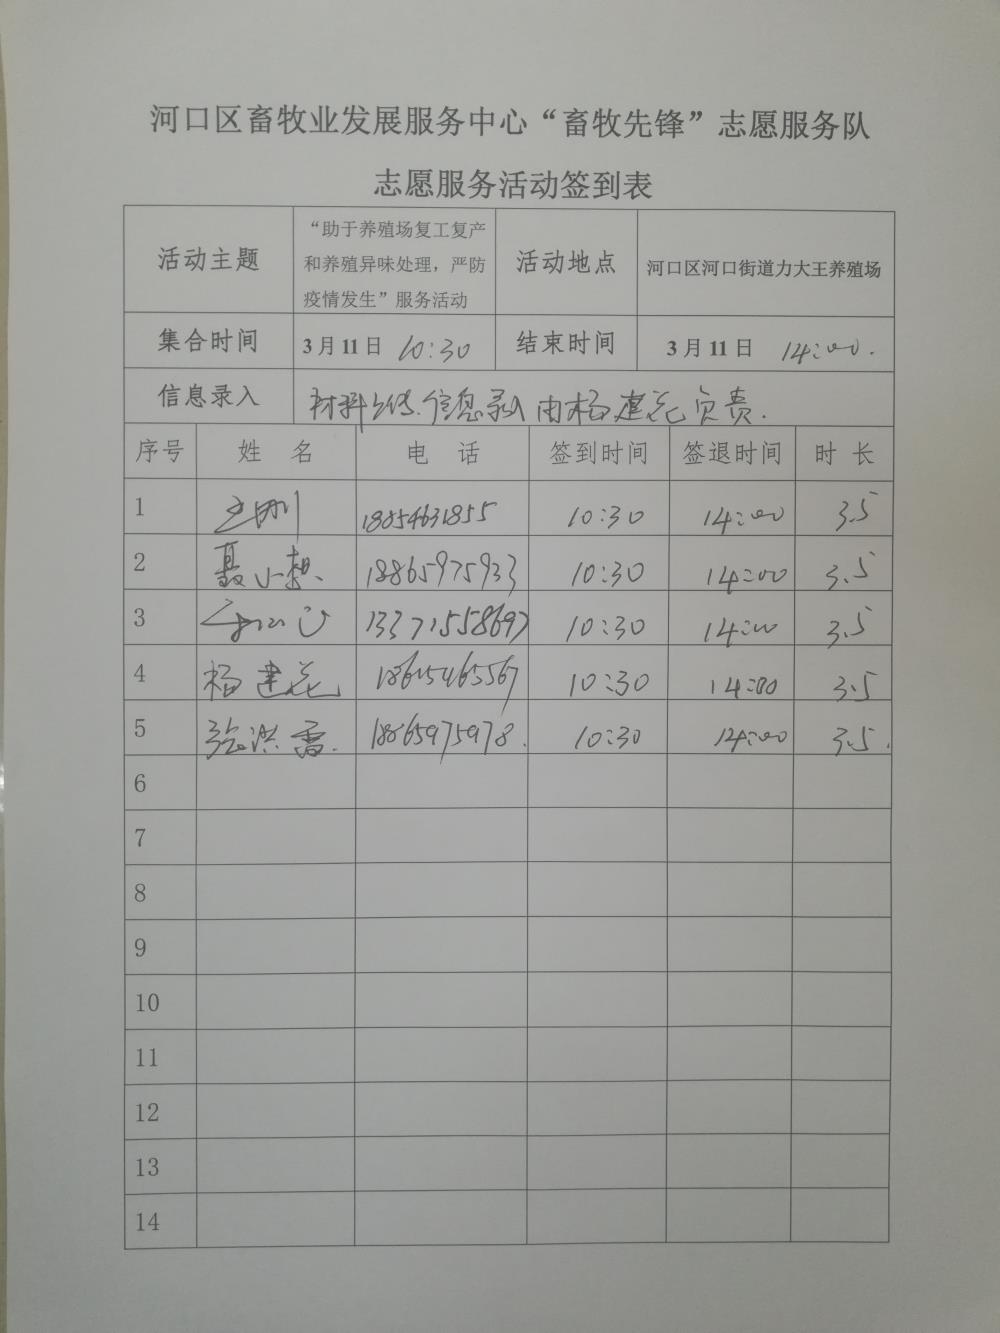 河口区畜牧业发展服务中心“畜牧先锋”志愿服务队
志愿服务活动签到表
活动主题 “助于养殖场复工复产和养殖异味处理，严防疫情发生”服务活动 活动地点 河口区河口街道力大王养殖场
集合时间 3月11日 10:30 结束时间 3月11日 14:00.
信息录入 材料上传.信息录入由杨建花负责.
序号 姓 名 电 话 签到时间 签退时间 时 长
1 王刚 18854631855 10:30 14:00 3.5
2 聂小想. 18865975933 10:30 14:00 3.5
3 13371558697 10:30 14:00 3.5
4 杨建花 18615465567 10:30 14:00 3.5
5 张洪雷. 18865975978. 10:30 14:00 3.5.
6
7
8
9
10
11
12
13
14